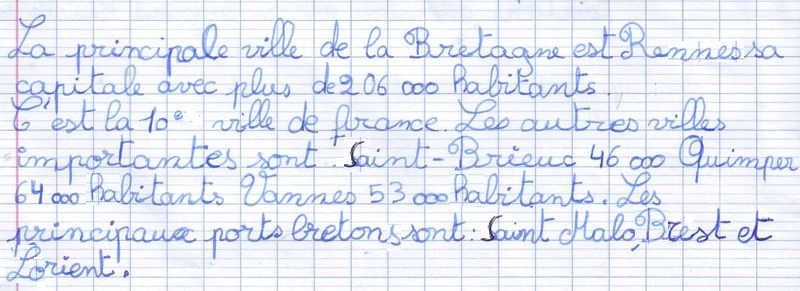 La principale ville de la Bretagne est Rennes sa
capitale avec plus de 206 000 habitants.
C'est la 10e ville de france. Les autres villes
importantes sont : Saint-Brieuc 46 000 Quimper
64 000 habitants Vannes 53 000 habitants. Les
principaux ports bretons sont : Saint Malo, Brest et
Lorient.